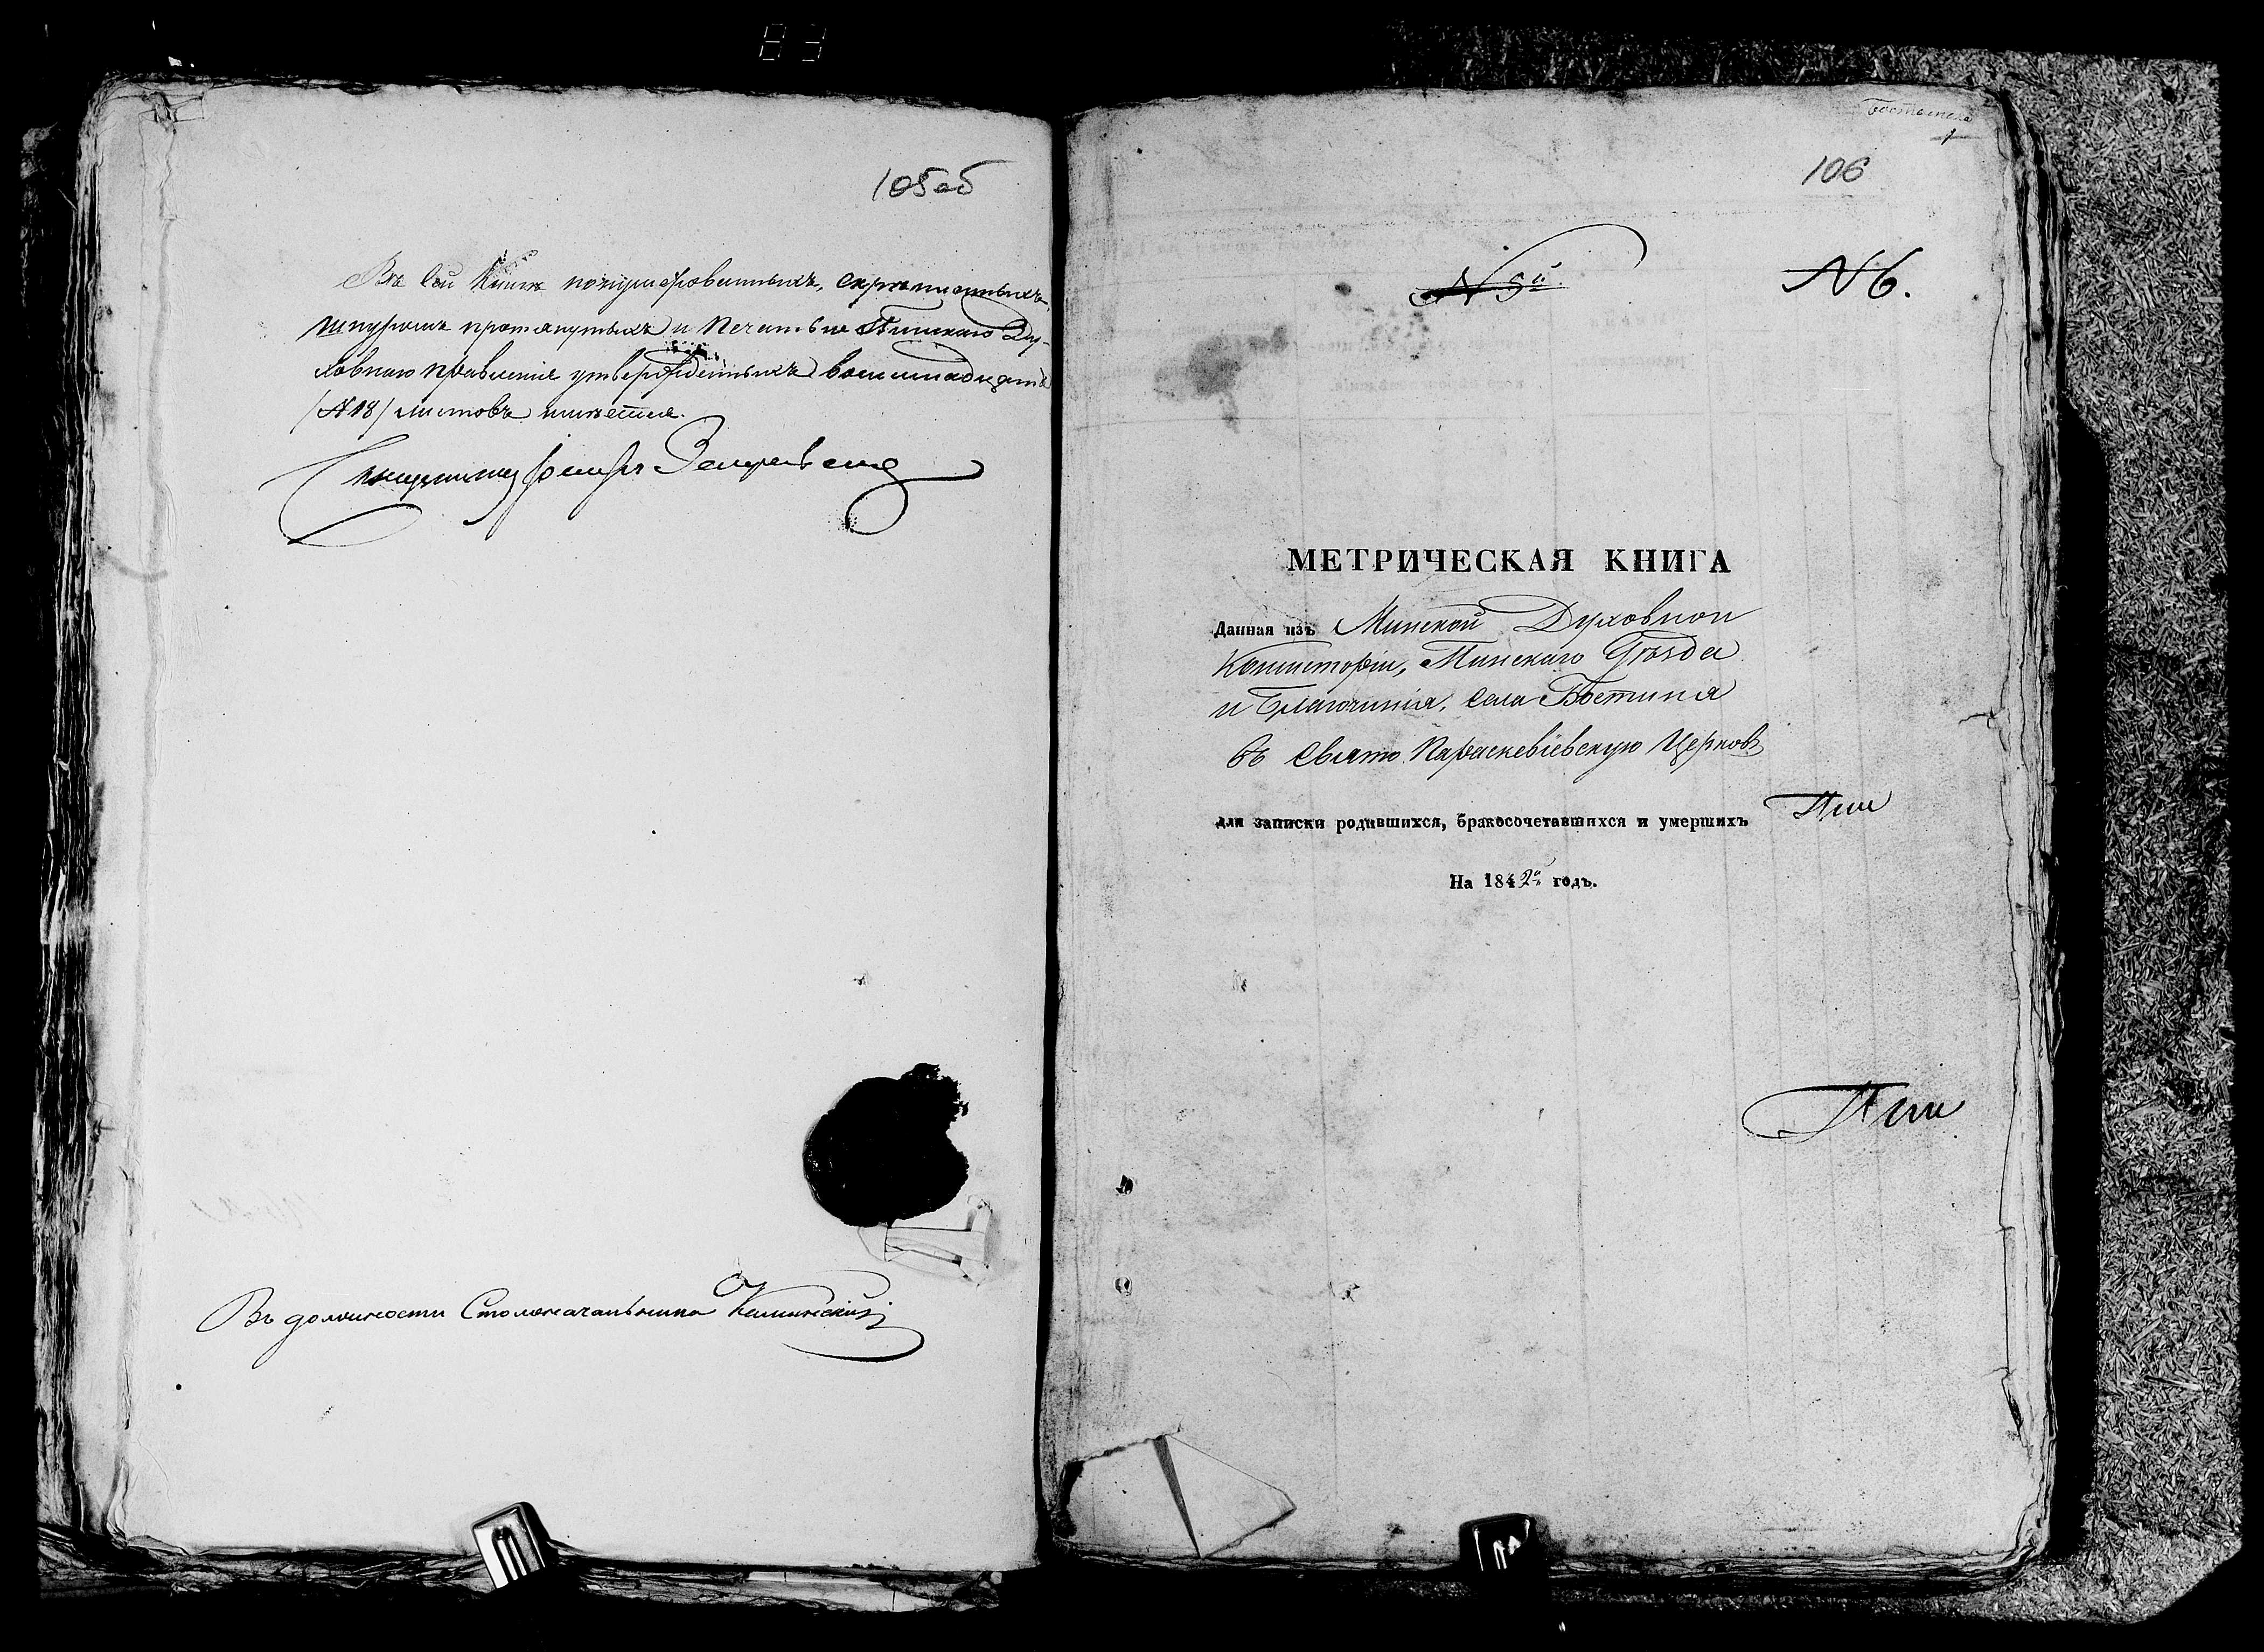 83
105об
Въ сей Книгѣ понумерованныхъ, скрѣпленныхъ,
шнуромъ протянутыхъ и печатью Пинскаго Ду-
ховнаго правленія утвержденныхъ восемнадцать
(№ 18) листовъ имѣется.
Въ должности Столоначальника
106
№ 5й
№ 6.
МЕТРИЧЕСКАЯ КНИГА
Данная изъ Минской Духовной
Консисторіи, Пинскаго Уѣзда
и Благочинія, села Бостыня
въ Свято Параскевіевскую Церковь
для записки родившихся, бракосочетавшихся и умершихъ
На 1842й годъ.